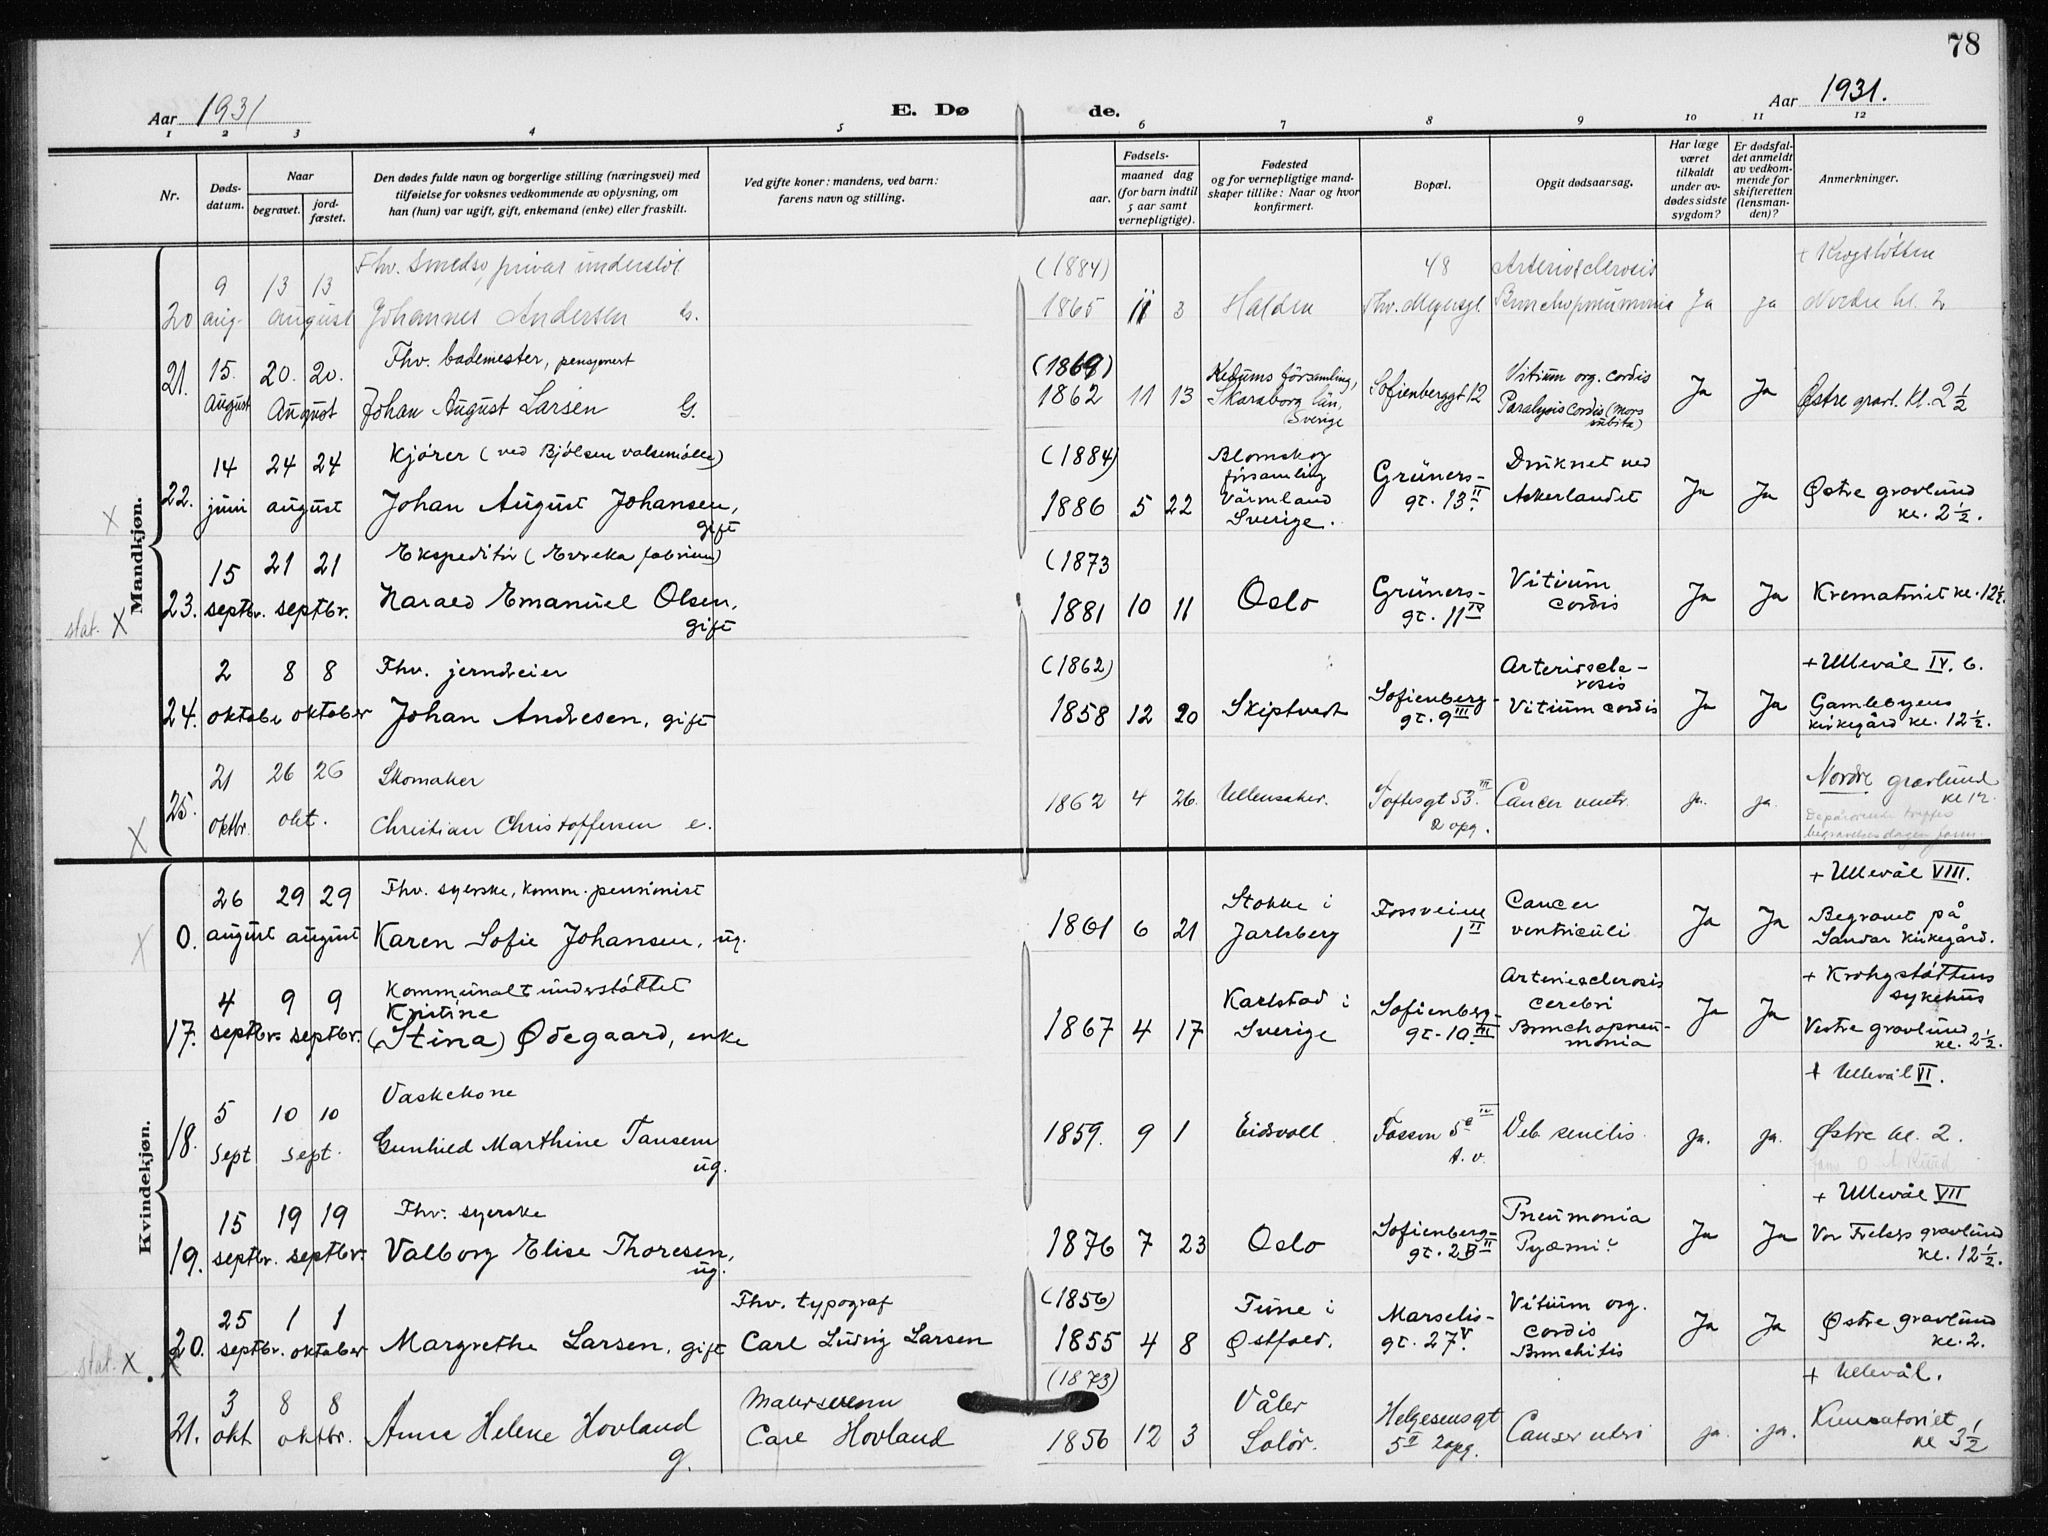 78
Aar 1931
E. Døde.
Aar 1931.
1 2 3 4 5 6 7 8 9 10 11 12
Nr.
Døds-datum.
Naar
begravet.
jord-fæstet.
Den dødes fulde navn og borgerlige stilling (næringsvei) med
tilføielse for voksnes vedkommende av oplysning, om
han (hun) var ugift, gift, enkemand (enke) eller fraskilt.
Ved gifte koner: mandens, ved barn:
farens navn og stilling.
Fødsels-
aar.
maaned dag
(for barn indtil
5 aar samt
vernepligtige).
Fødested
og for vernepligtige mand-
skaper tillike: Naar og hvor
konfirmert.
Bopæl.
Opgit dødsaarsag.
Har læge
været
tilkaldt
under av-
dødes sidste
sygdom?
Er dødsfal-
det anmeldt
av vedkom-
mende for
skifteretten
(lensman-
den)?
Anmerkninger.
Mandkjøn.
Fhv. Smedsv, privat understøt. (1884) 48 Arteriosclerosis + Krogstøtten
20 9 aug. 13 13 august Johannes Andersen G. 1865 11 3 Halden Thv. Meyersgt. Bronchopneumonia Ja ja Nordre kl. 2
Fhv. bademester, pensjonert (1869) Kedums församling, Vitium org. cordis
21. 15. August 20. 20. August Johan August Larsen G. 1862 11 13 Skaraborg län, Sverige Sofienberggt 12 Paralysis cordis (mors subita) Ja Ja Østre gravl. kl. 2 ½
Kjører (ved Bjølsen valsemølle) (1884) Blomskog församling Grüners- Druknet ved
22. 14 juni 24 24 august Johan August Johansen, gift 1886 5 22 Värmland Sverige. gt. 13 II. Akerlandet Ja Ja Østre gravlund kl. 2 ½.
X
Ekspeditør (Evreka fabrium) (1873 Grüners- Vitium
stat. X 23. 15 septbr. 21 21 septbr. Harald Emanuel Olsen, gift 1881 10 11 Oslo gt. 11 IV cordis Ja Ja Krematoriet kl. 12 ½.
Fhv. jerndreier (1862) Arterioscle-rosis + Ullevål IV. 6.
24. 2 oktobe 8 8 oktober Johan Andresen, gift 1858 12 20 Skiptvedt Sofienberg-gt. 9 III Vitium cordis Ja Ja Gamlebyens kirkegård kl. 12 ½.
Skomaker Nordre gravlund kl 12.
X 25. 21 oktbr. 26 26 okt. Christian Christoffersen e. 1862 4 26. Ullensaker. Toftesgt 53. III 2 opg. Cancer ventr. ja. ja.
begravelsesdagen
Kvindekjøn.
Fhv. syerske, komm. pensionist + Ullevål VIII.
X 0. 26 august 29 29 august Karen Sofie Johansen, ug. 1861 6 21 Stokke i Jarlsberg Fossveien 1 II Cancer ventriculi Ja Ja Begravet på Sandar kirkegård.
Kommunalt understøttet Arteriosclerosis + Krohgstøttens sykehus
17. 4 septbr. 9 9 septbr. Kristine (Stina) Ødegaard, enke 1867 4 17 Karlstad i Sverige Sofienberg-gt. 10 III cerebri Bronchopneu-monia Ja Ja Vestre gravlund kl. 2 ½.
Vaskekone + Ullevål VI.
18. 5 sept 10 10 sept. Gunhild Marthine Tansem ug. 1859. 9 1 Eidsvoll Fossvn 5 e IV t. v. Deb. senilis. ja. ja. Østre kl. 2.
Fhv. syerske Pneumonia + Ullevål VII
19. 15 septbr. 19 19 septbr. Valborg Elise Thoresen, ug. 1876 7 23 Oslo Sofienberg-gt. 2B II Pyæmi? Ja Ja Vor Frelsers gravlund kl. 12 ½.
Fhv. typograf (1856) Vitium org.
stat. X X 20. 25 septbr. 1 1 oktober Margrethe Larsen, gift Carl Ludvig Larsen 1855 4 8 Tune i Østfold. Marselis-gt. 27 V. cordis Bronchitis Ja Ja Østre gravlund kl. 2.
Malersvenn (1873) + Ullevål.
21. 3 okt 8 8 oktbr. Anna Helene Hovland g. Carl Hovland 1856 12 3 Våler Solør. Helgesensgt 5 II 2 opg. Canser uteri ja. ja. Krematoriet kl 3 ½